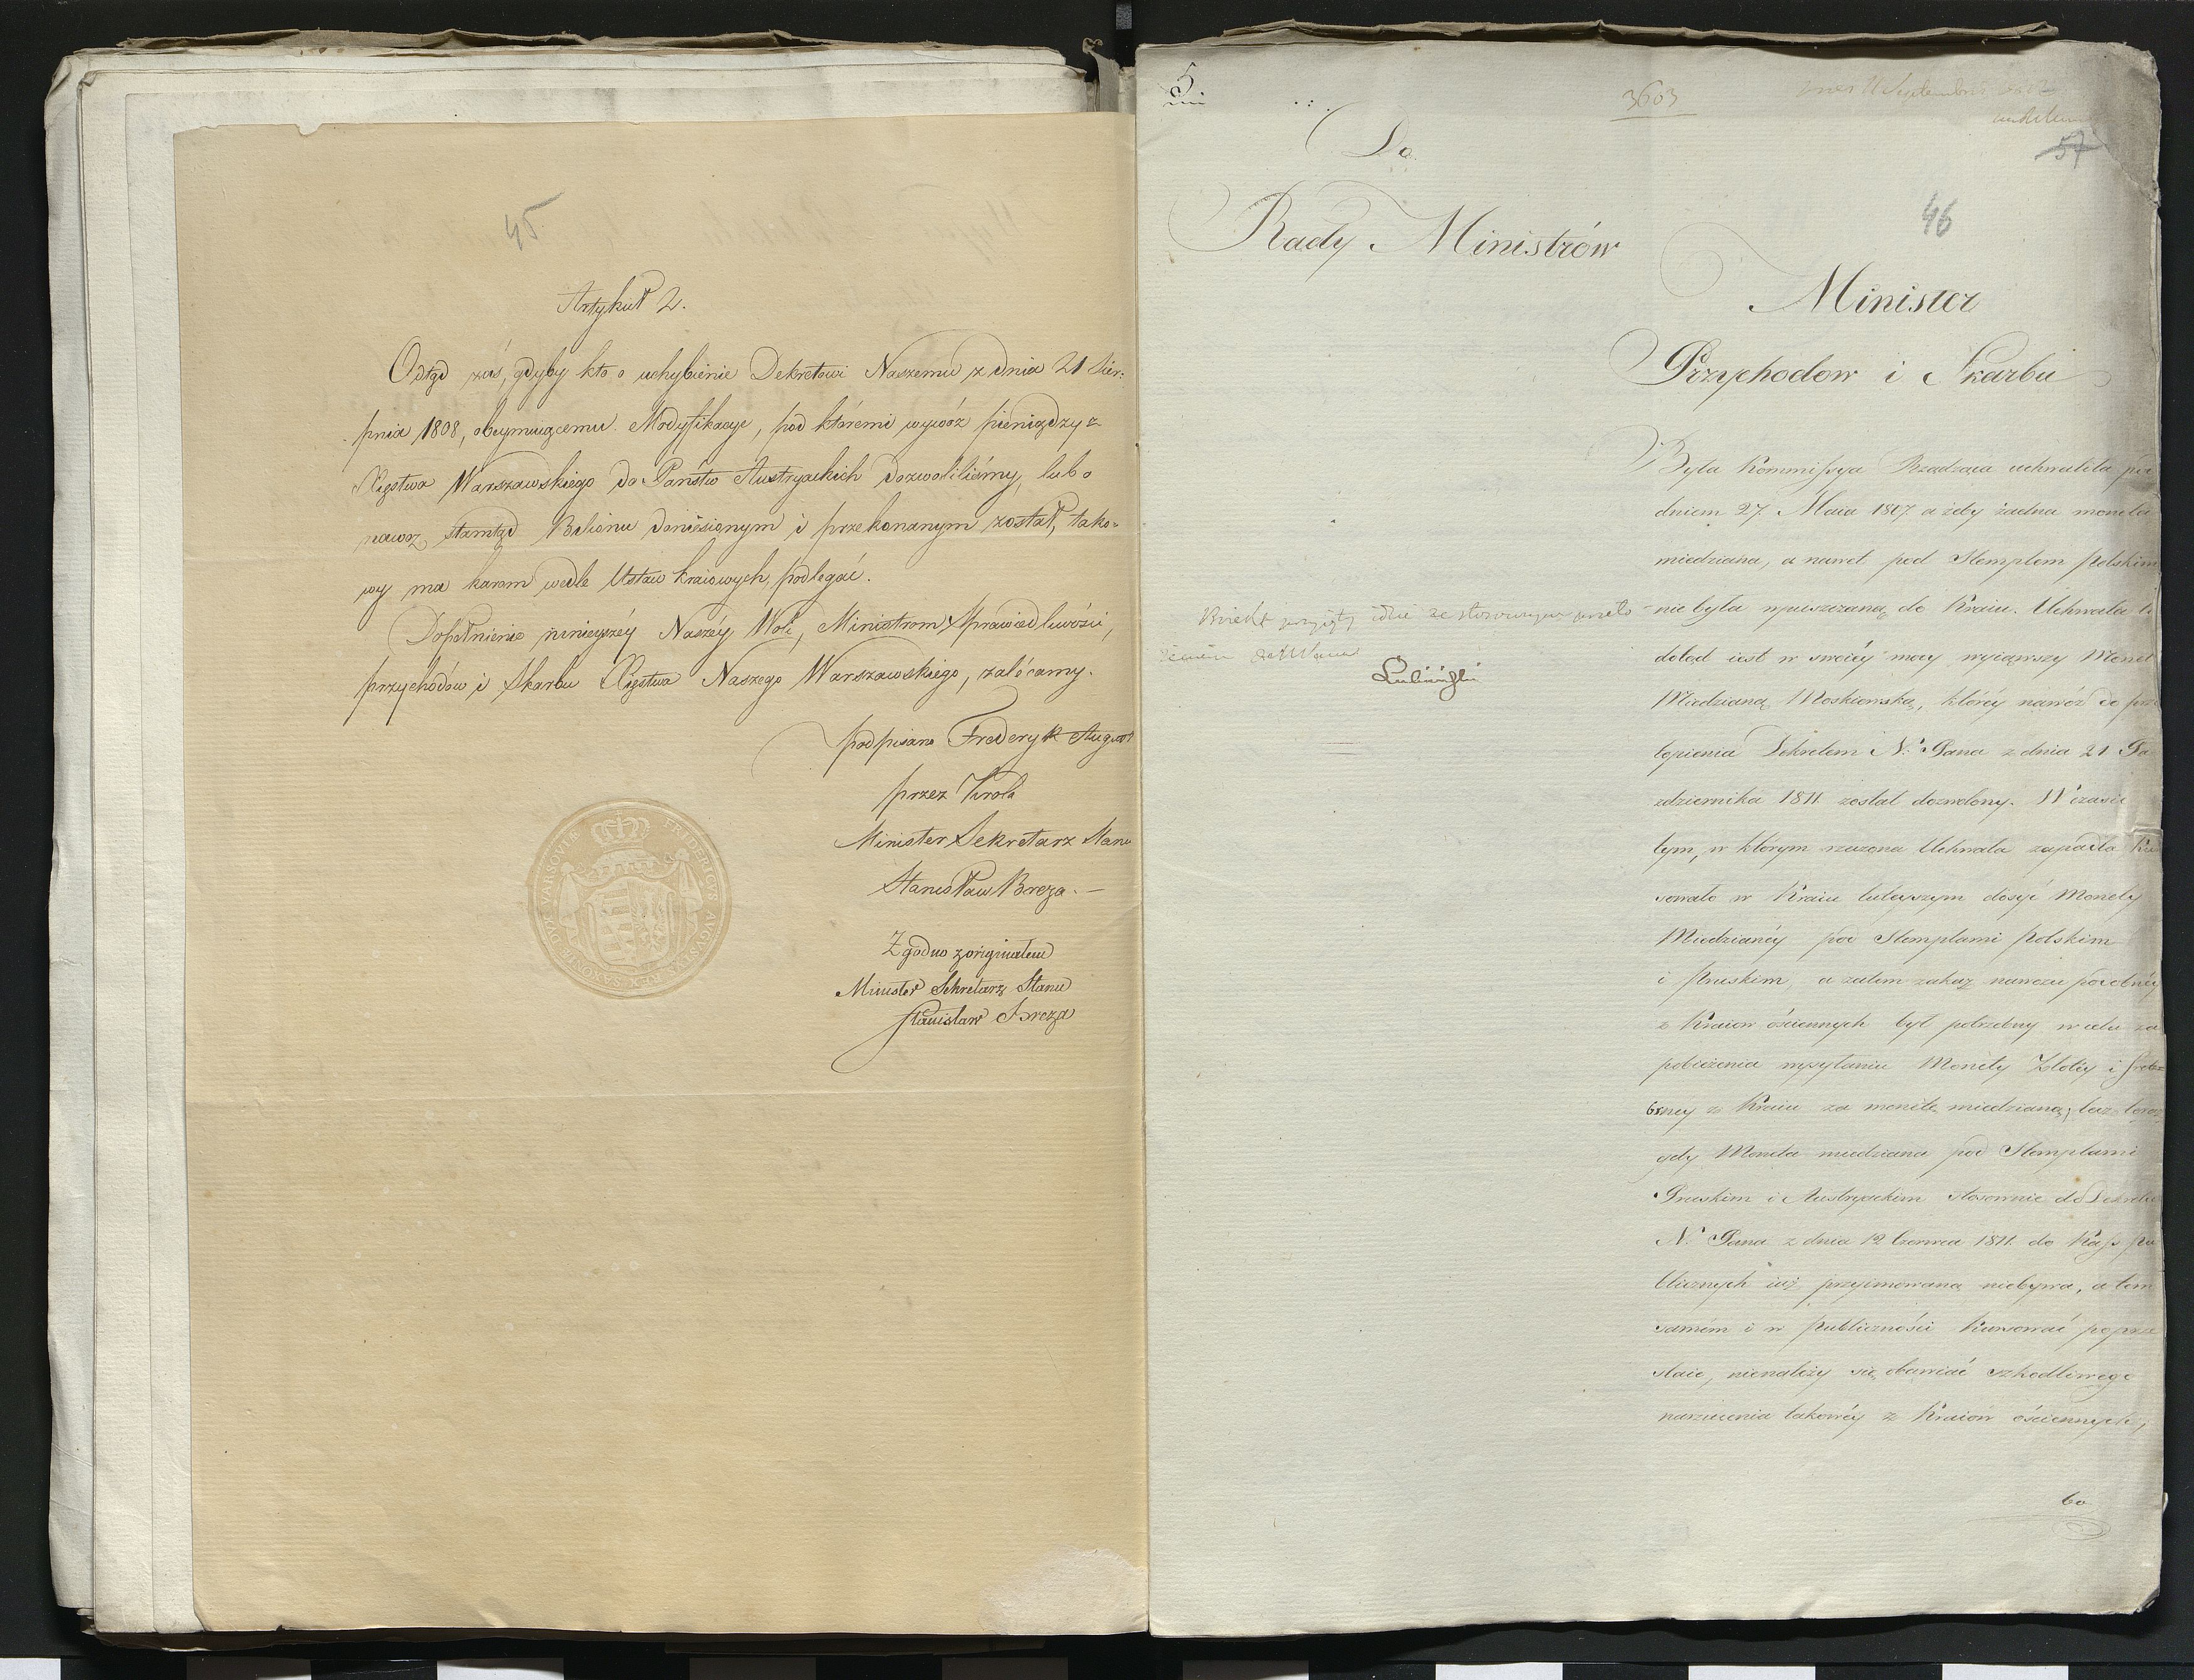 45
Artykuł 2.
Odtąd zaś, gdyby kto o uchybienie Dekretowi Naszemu z dnia 21 Sier:
pnia 1808, obeymuiącemu Modyfikacye, pod któremi wywóz pieniędzy z
Xięstwa Warszawskiego do Państw Austryackich dozwoliliśmy, lub o
nawoz stamtąd Bilionu doniesionym i przekonanym został, tako=
wy ma karom wedle Ustaw kraiowych, podlegać.
Dopełnienie ninieyszéy Naszéy Woli, Ministrom Sprawiedliwości,
przychodów i Skarbu Xięstwa Naszego Warszawskiego, zalécamy.
podpisano Frederyk August
przez Króla
Minister Sekretarz Stanu
Stanisław Breza. —
FRIDERICVS AVGVSTVS REX SAXONIAE DVX VARSOVIAE
Zgodno z originałem
Minister Sekretarz Stanu
Stanisław Breza
5
3603
Septembris
57
46
Do
Rady Ministrów
Minister
Przychodow i Skarbu
Była Kommissya Rządząca uchwaliła pod
dniem 27. Maia 1807. ażeby żadna moneta
miedziana, a nawet pod Stemplem Polskim
nie była wpuszczaną do Kraiu. Uchwała ta
dotąd iest w swoiéy mocy wyiąwszy Monet
Miedzianą Moskiewską, któréy nawóz do prze
topienia Dekretem N. Pana z dnia 21 Pa
zdziernika 1811. został dozwolony. W czasie
tym, w którym rzeczona Uchwała zapadła Kur
sowało w Kraiu tuteyszym dosyć Monety
Miedzianéy pod Stemplami Polskim
i Pruskim, a zatem zakaz nawozu podobnéy
z Kraiow ościennych był potrzebny w celu za
pobieżenia wysyłaniu Monety Złotéy i Srebr
brney z Kraiu za monetę miedzianą; lecz teraz
gdy Moneta miedziana pod Stemplami
Pruskim i Austryackim stosownie do Dekretu
N. Pana z dnia 12 Czerwca 1811. do Kass Pu
blicznych iuż przyimowaną niebywa, a tem
samém i w Publiczności Kursować poprze
staie, nienależy się obawiać szkodliwego
narzucenia takowéy z Kraiów ościennych,
bo
przyięty idzie ze stosownym
Stanu
Lubieński